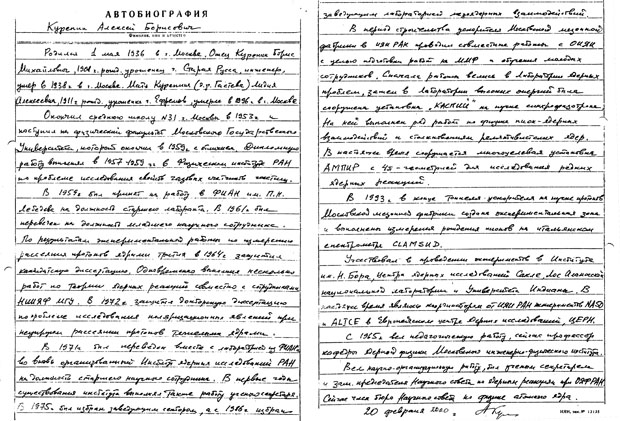 АВТОБИОГРАФИЯ
Курепин Алексей Борисович
Фамилия, имя и отчество
Родился 1 мая 1936 в г. Москва. Отец Курепин Борис
Михайлович, 1901 г. рожд, уроженец г. Старая Русса, инженер,
умер в 1938 г. в Москве. Мать Курепина Лидия
Алексеевна, 1911 г. рожд, уроженка г. Ефремов, умерла в в Москве
Окончил среднюю школу N31 г. Москвы в 1953 г. и
поступил на физический факультет Московского Государственного
Университета, который окончил в 1959 г. с отличием. Дипломную
работу выполнял в 1957-1959 г. в Физическом институте РАН
по проблеме исследования свойств частиц.
В 1959 г. был принят на работу в ФИАН им. П.Н.
Лебедева на должность старшего лаборанта. В 1961 г. был
переведен на должность младшего научного сотрудника.
По результатам экспериментальной работы по измерению
рассеяния протонов ядрами трития в 1964 г. защитил
кандидатскую диссертацию. Одновременно выполнил несколько
работ по теории ядерных реакций совместно с сотрудниками
НИИЯФ МГУ. В 1972 г. защитил докторскую диссертацию
по проблеме исследования явлений при
рассеянии протонов ядрами.
В 1971 г. был переведен вместе с лабораторией из ФИАН
во вновь организованный Институт ядерных исследований РАН
на должность старшего научного сотрудника. В первые годы
существования института выполнял также работу ученого секретаря.
В 1975 г. был избран заведующим сектором, а с 1986 г. избран
заведующим лабораторией взаимодействий
В период строительства ускорителя Московской мезонной
фабрики в ИЯИ РАН проводил совместные работы с ОИЯИ
с целью подготовки работ на ММФ и обучения молодых
сотрудников. Сначала работы велись в Лаборатории ядерных
проблем, затем в Лаборатории высоких энергий была
сооружена установка "КАСПИЙ" на пучке синхрофазотрона.
На ней выполнен ряд работ по физике пион-ядерных
взаимодействий и столкновениям релятивистских ядер.
В настоящее время сооружается многоцелевая установка
АМПИР с 4π-геометрией для исследования редких
ядерных реакций.
В 1993 г. в конце тоннеля ускорителя на пучке протонов
Московской мезонной фабрики создана экспериментальная зона
и выполнены измерения рождения пионов на итальянском
спектрометре CLAMSUD.
Участвовал в проведении экспериментов в Институте
им. Н. Бора, Центре ядерных исследований Сакле, Лос Аламосской
национальной лаборатории и Университете Индиана. В
настоящее время являюсь координатором от ИЯИ РАН экспериментов NA50
и ALICE в Европейском центре ядерных исследований, ЦЕРН.
С 1965 г. вел педагогическую работу, сейчас профессор
кафедры ядерной физики Московского инженерно-физического института.
Вел научно-организационную работу, был ученым секретарем
и зам. председателя Научного совета по ядерным реакциям при ОЯФ РАН
Сейчас член бюро Научного совета по физике атомного ядра.
20 февраля 2000 г.